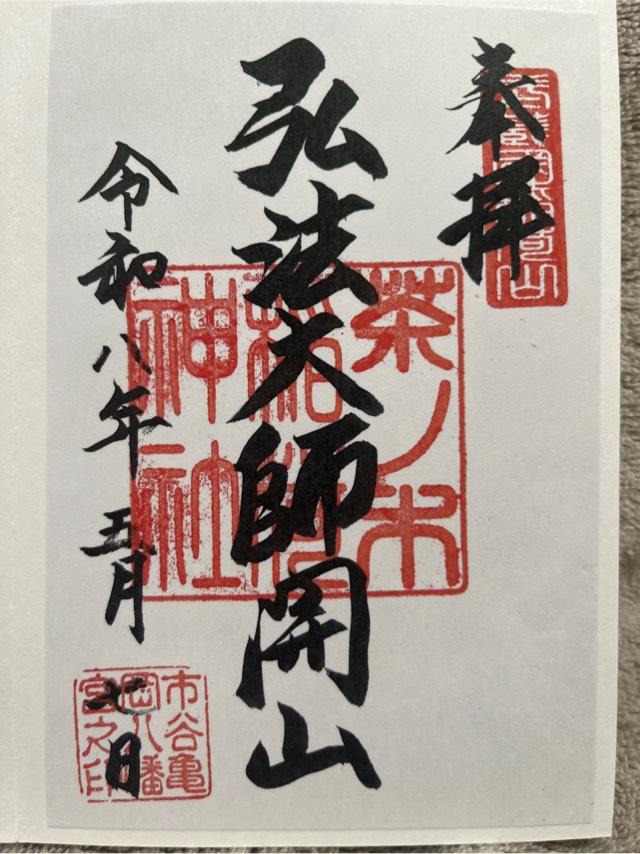 奉拝
弘法大師開山
茶ノ木
稲荷
神社
令和八年五月七日
市谷亀
岡八幡
宮之印